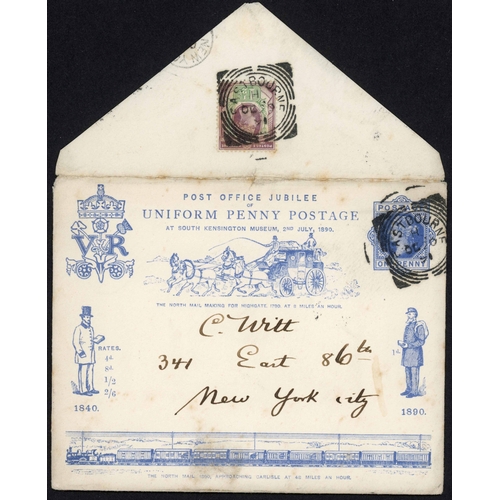 EASTBOURNE
POST OFFICE JUBILEE
OF
UNIFORM PENNY POSTAGE
AT SOUTH KENSINGTON MUSEUM, 2ND JULY, 1890.
V R
POSTAGE
EASTBOURNE
ONE PENNY
THE NORTH MAIL MAKING FOR HIGHGATE 1790 AT 8 MILES AN HOUR.
C. Witt
341 East 86th
New York City
RATES.
4d
8d
1/2
2/6
1d
1840.
1890.
THE NORTH MAIL 1890, APPROACHING CARLISLE AT 48 MILES AN HOUR.